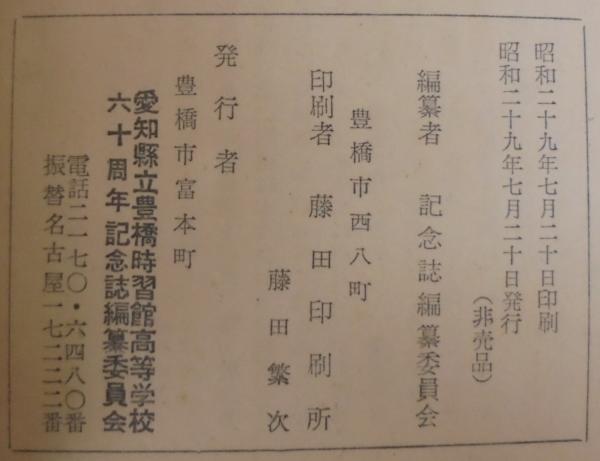 昭和二十九年七月二十日印刷
昭和二十九年七月二十日発行
(非売品)
編纂者　記念誌編纂委員会
豊橋市西八町
印刷者　藤田印刷所
藤田繁次
発行者
豊橋市富本町
愛知縣立豊橋時習館高等学校
六十周年記念誌編纂委員会
電話二一七〇・六四八〇番
振替名古屋一七二二二番